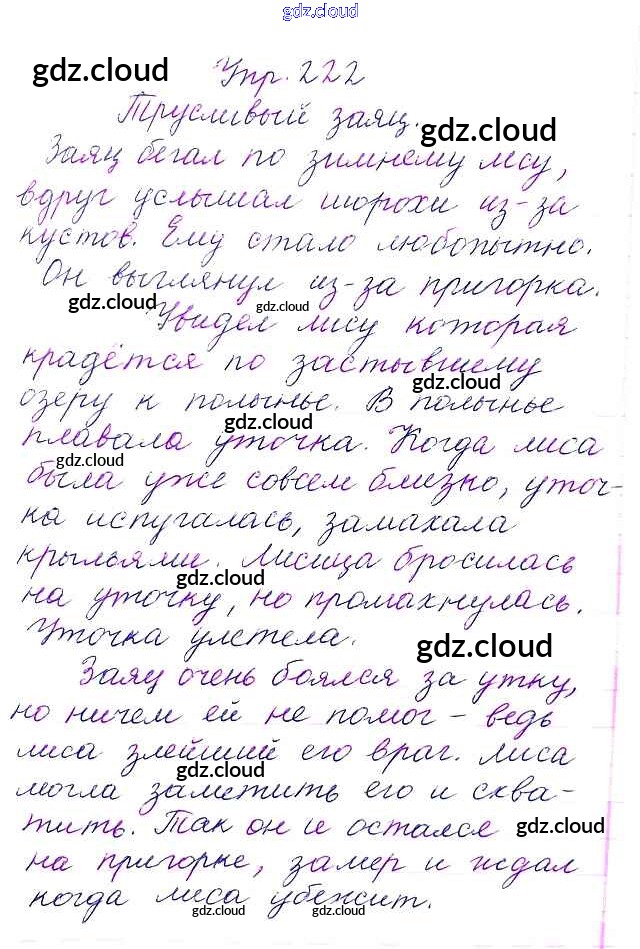 gdz.cloud
gdz.cloud Упр. 222
Трусливый заяц.
gdz.cloud
Заяц бегал по зимнему лесу,
вдруг услышал шорохи из-за
кустов. Ему стало любопытно.
Он выглянул из-за пригорка.
gdz.cloud gdz.cloud
Увидел лису которая
крадётся по застывшему
gdz.cloud
озеру к полынье. В полынье
gdz.cloud
плавала уточка. Когда лиса
gdz.cloud
была уже совсем близко, уточ-
ка испугалась, замахала
крыльями. Лисица бросилась
gdz.cloud
на уточку, но промахнулась.
Уточка улетела.
gdz.cloud
Заяц очень боялся за утку,
но ничем ей не помог - ведь
лиса злейший его враг. Лиса
gdz.cloud
могла заметить его и схва-
тить. Так он и остался
gdz.cloud
на пригорке, замер и ждал
когда лиса убежит.
gdz.cloud gdz.cloud